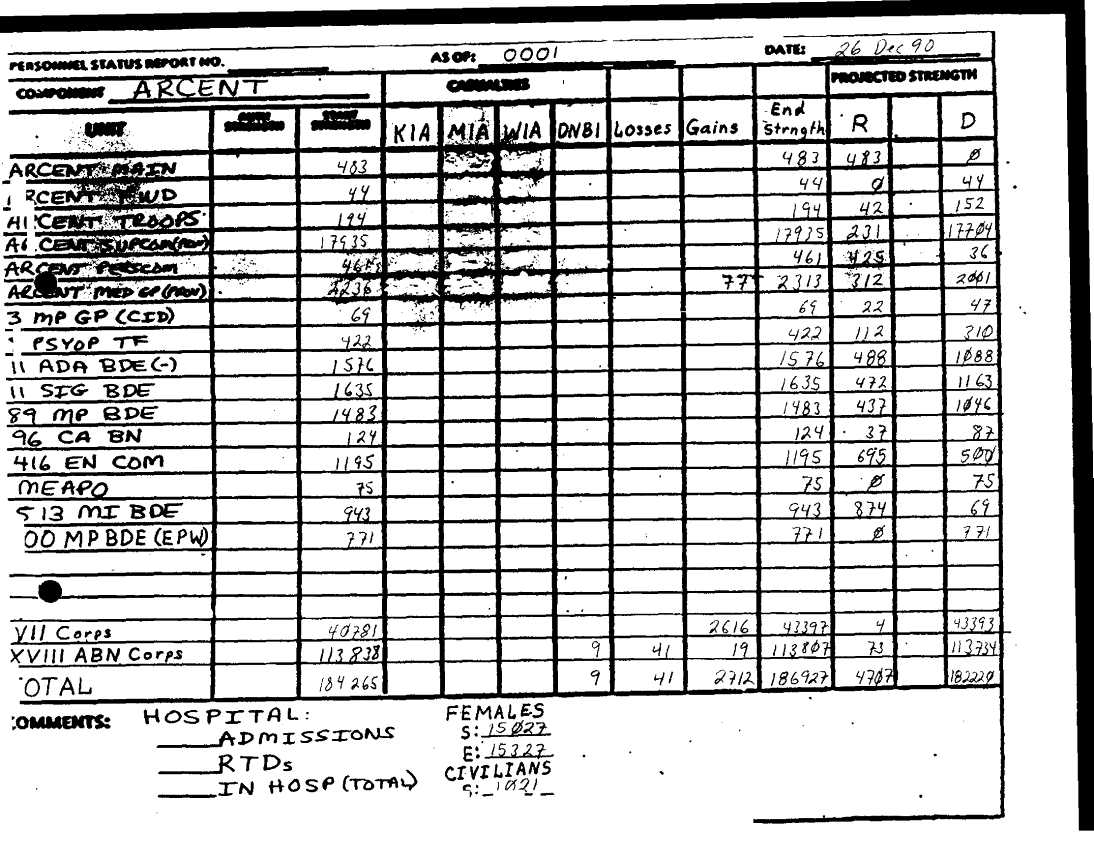 PERSONNEL STATUS REPORT NO. AS OF: 0001 DATE: 26 Dec 90
COMPONENT ARCENT CASUALTIES PROJECTED STRENGTH
UNIT STRENGTH START STRENGTH KIA MIA WIA DNBI Losses Gains End Strngth R D
ARCENT MAIN 483 483 483 Ø
RCENT FWD 44 44 Ø 44
CENT TROOPS 194 194 42 152
CENT SUPCOM (PROV) 17935 17935 231 17704
ARCENT PERSCOM 461 461 425 36
ARCENT MED GP (PROV) 2236 77 2313 312 2001
3 MP GP (CID) 69 69 22 47
PSYOP TF 422 422 112 310
11 ADA BDE (-) 1576 1576 488 1Ø88
11 SIG BDE 1635 1635 472 1163
89 MP BDE 1483 1483 437 1Ø46
96 CA BN 124 124 37 87
416 EN COM 1195 1195 695 5ØØ
MEAPO 75 75 Ø 75
513 MI BDE 943 943 874 69
00 MP BDE (EPW) 771 771 Ø 771
VII Corps 40781 2616 43397 4 43393
XVIII ABN Corps 113838 9 41 19 1138Ø7 73 113734
OTAL 184265 9 41 2712 186927 47Ø7 18222Ø
COMMENTS: HOSPITAL: FEMALES
ADMISSIONS S: 15Ø27
RTDs E: 15327
IN HOSP (TOTAL) CIVILIANS
S: 1Ø21